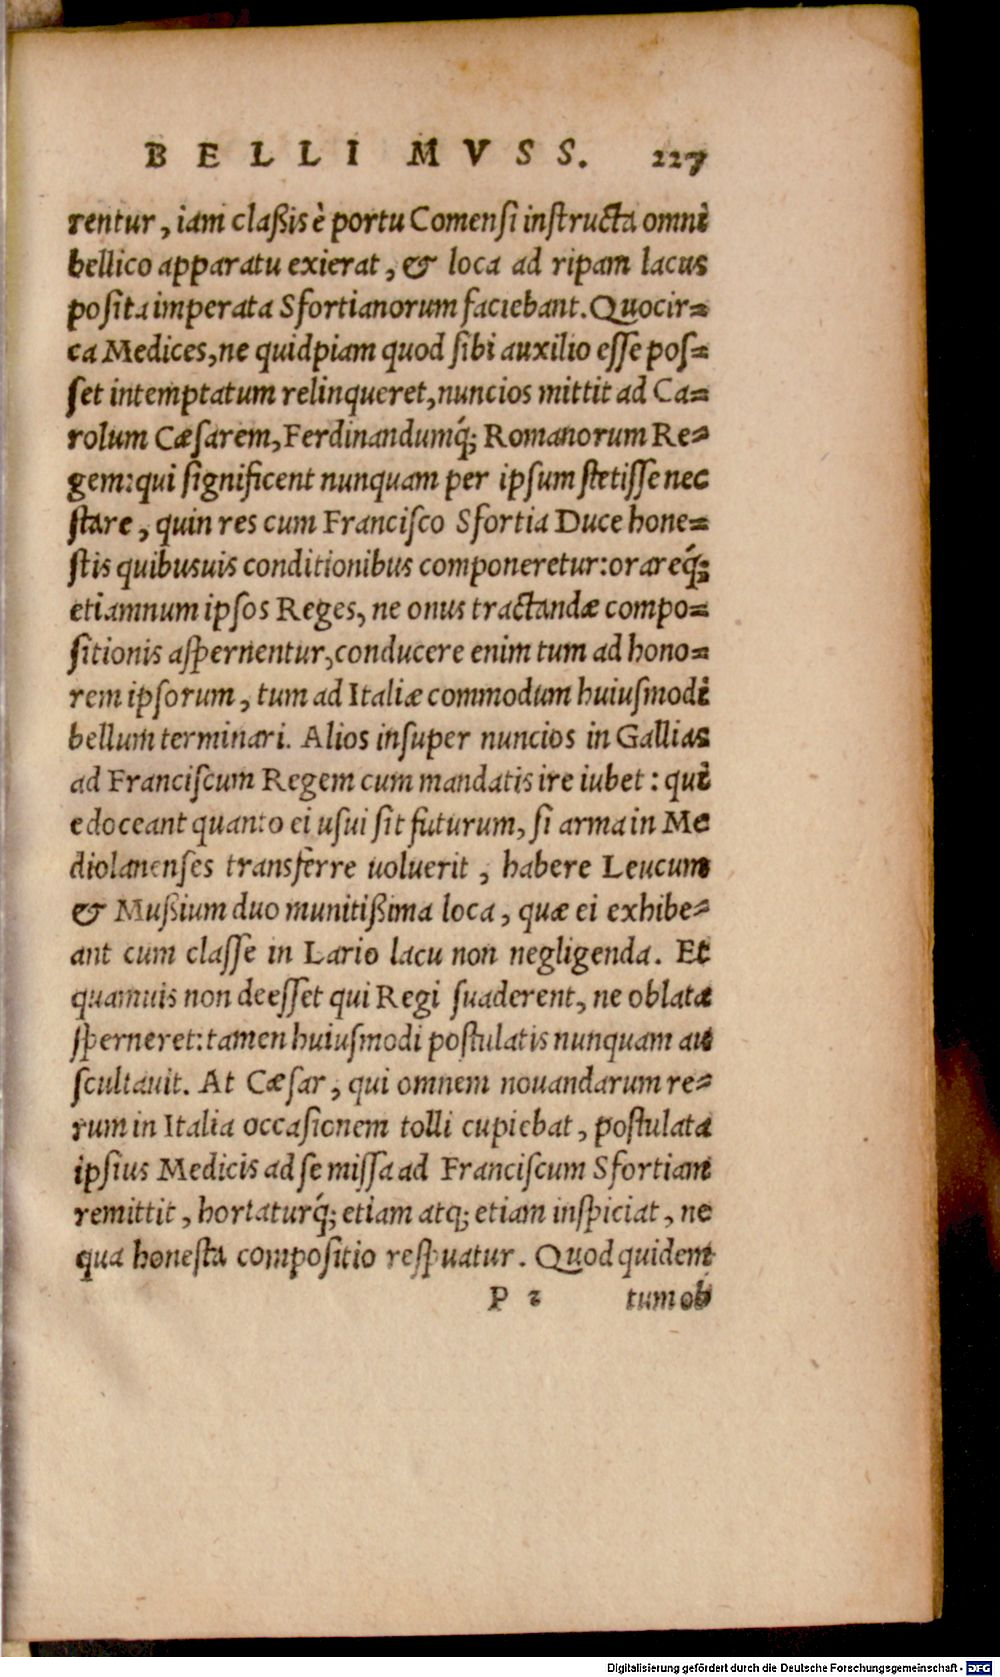 BELLI MVSS. 227
rentur, iam claßis è portu Comensi instructa omni
bellico apparatu exierat, & loca ad ripam lacus
posita imperata Sfortianorum faciebant. Quocir=
ca Medices, ne quidpiam quod sibi auxilio esse pos=
set intemptatum relinqueret, nuncios mittit ad Ca=
rolum Cæsarem, Ferdinandumq́; Romanorum Re=
gem: qui significent nunquam per ipsum stetisse nec
stare, quin res cum Francisco Sfortia Duce hone=
stis quibusuis conditionibus componeretur: orareq́;
etiamnum ipsos Reges, ne onus tractandæ compo=
sitionis aspernentur, conducere enim tum ad hono=
rem ipsorum, tum ad Italiæ commodum huiusmodi
bellum terminari. Alios insuper nuncios in Gallias
ad Franciscum Regem cum mandatis ire iubet: qui
edoceant quanto ei usui sit futurum, si arma in Me
diolanenses transferre uoluerit, habere Leucum
& Mußium duo munitißima loca, quæ ei exhibe=
ant cum classe in Lario lacu non negligenda. Et
quamuis non deesset qui Regi suaderent, ne oblata
sperneret: tamen huiusmodi postulatis nunquam au
scultauit. At Cæsar, qui omnem nouandarum re=
rum in Italia occasionem tolli cupiebat, postulata
ipsius Medicis ad se missa ad Franciscum Sfortiam
remittit, hortaturq́; etiam atq; etiam inspiciat, ne
qua honesta compositio respuatur. Quod quidem
P 2 tum ob
Digitalisierung gefördert durch die Deutsche Forschungsgemeinschaft - DFG